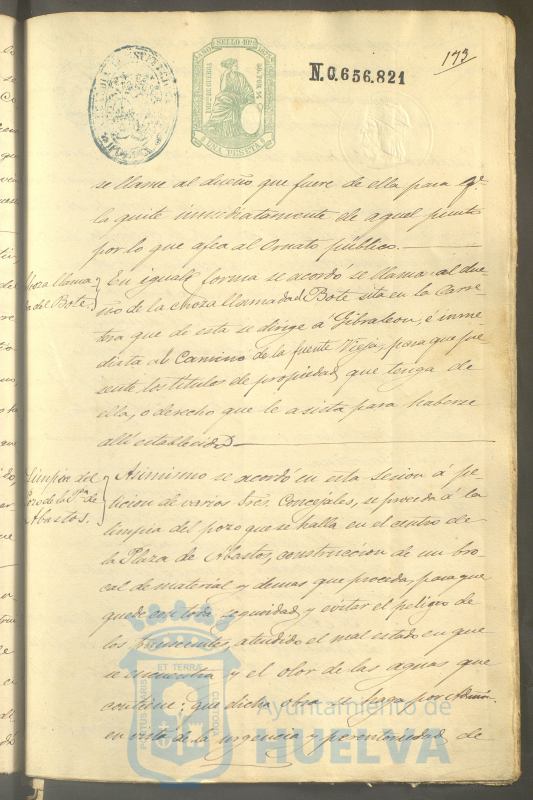 173
SELLO 10º
UNA PESETA
N.0.656.821
se llame al dueño que fuere de ella para qe.
la quite inmediatamente de aquel punto
por lo que afea al Ornato público.
Choza llama
da del Bote.
En igual forma se acordó se llama al due
ño de la choza llamada del Bote sita en la Carre-
tera que de esta se dirige á Gibraleon, é inme-
diata al Camino de la fuente Vieja, para que pre
sente los títulos de propiedad que tenga de
ella, o derecho que le asista para haberse
allí establecido
Limpia del
Pozo de la Pza. de
Abastos.
Asimismo se acordó en esta Sesion á pe-
ticion de varios Sres Concejales, se proceda á la
limpia del pozo que se halla en el centro de
la Plaza de Abastos, construccion de un bro
cal de material y demas que proceda, para que
quede con toda seguridad, y evitar el peligro de
los transeuntes, atendido el mal estado en que
se encuentra y el olor de las aguas que
contiene; que dicha obra se haga por Admon.
en vista de la urgencia y perentoriedad de
PORTUS MARIS ET TERRÆ CUSTODIA
Ayuntamiento de
HUELVA